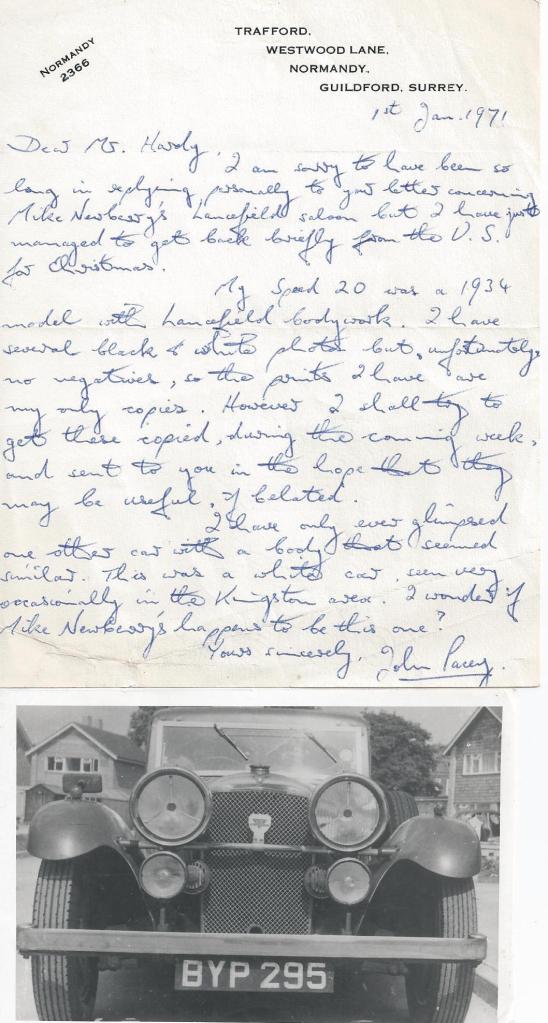 TRAFFORD,
WESTWOOD LANE,
NORMANDY,
GUILDFORD, SURREY.
NORMANDY
2366
1st Jan. 1971
Dear Mr. Hardy,
I am sorry to have been so
long in replying personally to your letter concerning
Mike Newberry's Lancefield saloon but I have just
managed to get back briefly from the U.S.
for Christmas.
My Speed 20 was a 1934
model with Lancefield bodywork. I have
several black & white photos but, unfortunately,
no negatives, so the prints I have are
my only copies. However I shall try to
get these copied, during the coming week,
and sent to you in the hope that they
may be useful, if belated.
I have only ever glimpsed
one other car with a body that seemed
similar. This was a white car, seen very
occasionally in the Kingston area. I wonder if
Mike Newberry's happens to be this one?
Yours sincerely, John Pacey.
BYP 295